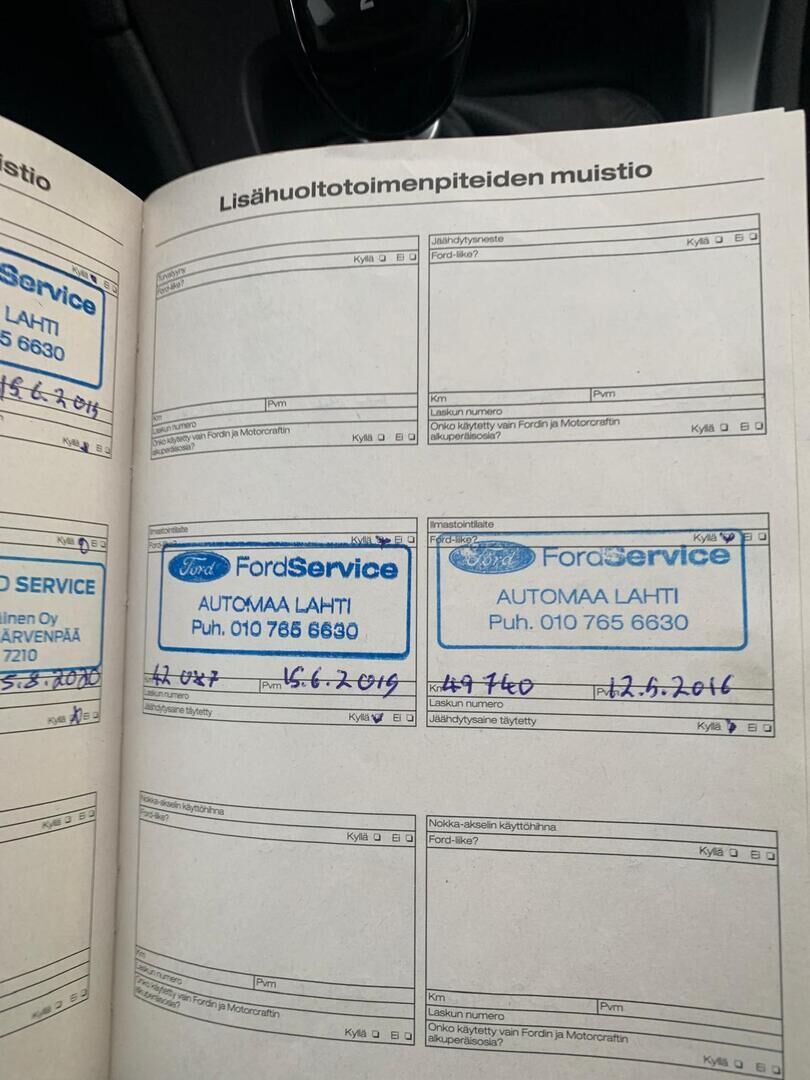 istio
Kyllä Ei
Service
LAHTI
5 6630
15.6.2015
Kyllä Ei
Kyllä Ei
D SERVICE
inen Oy
ÄRVENPÄÄ
7210
5.8.2020
Kyllä Ei
Kyllä Ei
Kyllä Ei
Lisähuoltotoimenpiteiden muistio
Turvatyyny
Ford-liike? Kyllä Ei
Km Pvm
Laskun numero
Onko käytetty vain Fordin ja Motorcraftin
alkuperäisosia? Kyllä Ei
Jäähdytysneste
Ford-liike? Kyllä Ei
Km Pvm
Laskun numero
Onko käytetty vain Fordin ja Motorcraftin
alkuperäisosia? Kyllä Ei
Ilmastointilaite
Ford-liike? Kyllä Ei
Ford FordService
AUTOMAA LAHTI
Puh. 010 765 6630
Km 42 047 Pvm 15.6.2015
Laskun numero
Jäähdytysaine täytetty Kyllä Ei
Ilmastointilaite
Ford-liike? Kyllä Ei
Ford FordService
AUTOMAA LAHTI
Puh. 010 765 6630
Km 49 740 Pvm 12.5.2016
Laskun numero
Jäähdytysaine täytetty Kyllä Ei
Nokka-akselin käyttöhihna
Ford-liike? Kyllä Ei
Km Pvm
Laskun numero
Onko käytetty vain Fordin ja Motorcraftin
alkuperäisosia? Kyllä Ei
Nokka-akselin käyttöhihna
Ford-liike? Kyllä Ei
Km Pvm
Laskun numero
Onko käytetty vain Fordin ja Motorcraftin
alkuperäisosia? Kyllä Ei